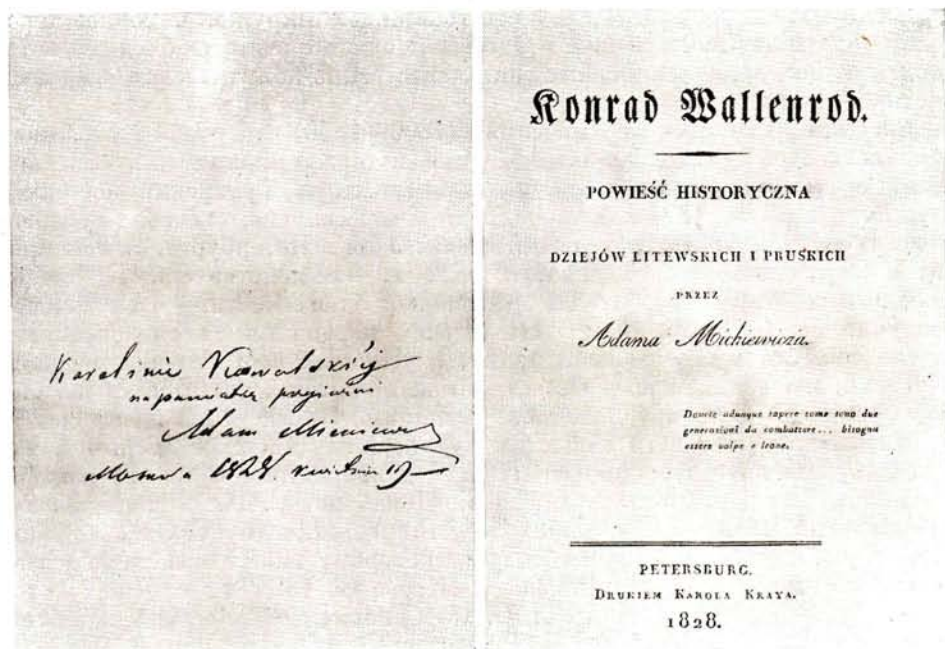 Karolinie Kowalskiéj
na pamiątkę przyjaźni
Adam Mickiewicz
Moskwa 1828. kwietnia
Konrad Wallenrod.
POWIEŚĆ HISTORYCZNA
DZIEJÓW LITEWSKICH I PRUSKICH
PRZEZ
Adama Mickiewicza.
Dovete adunque sapere come sono due
generazioni da combattere... bisogna
essere volpe e leone.
PETERSBURG.
DRUKIEM KAROLA KRAYA.
1828.